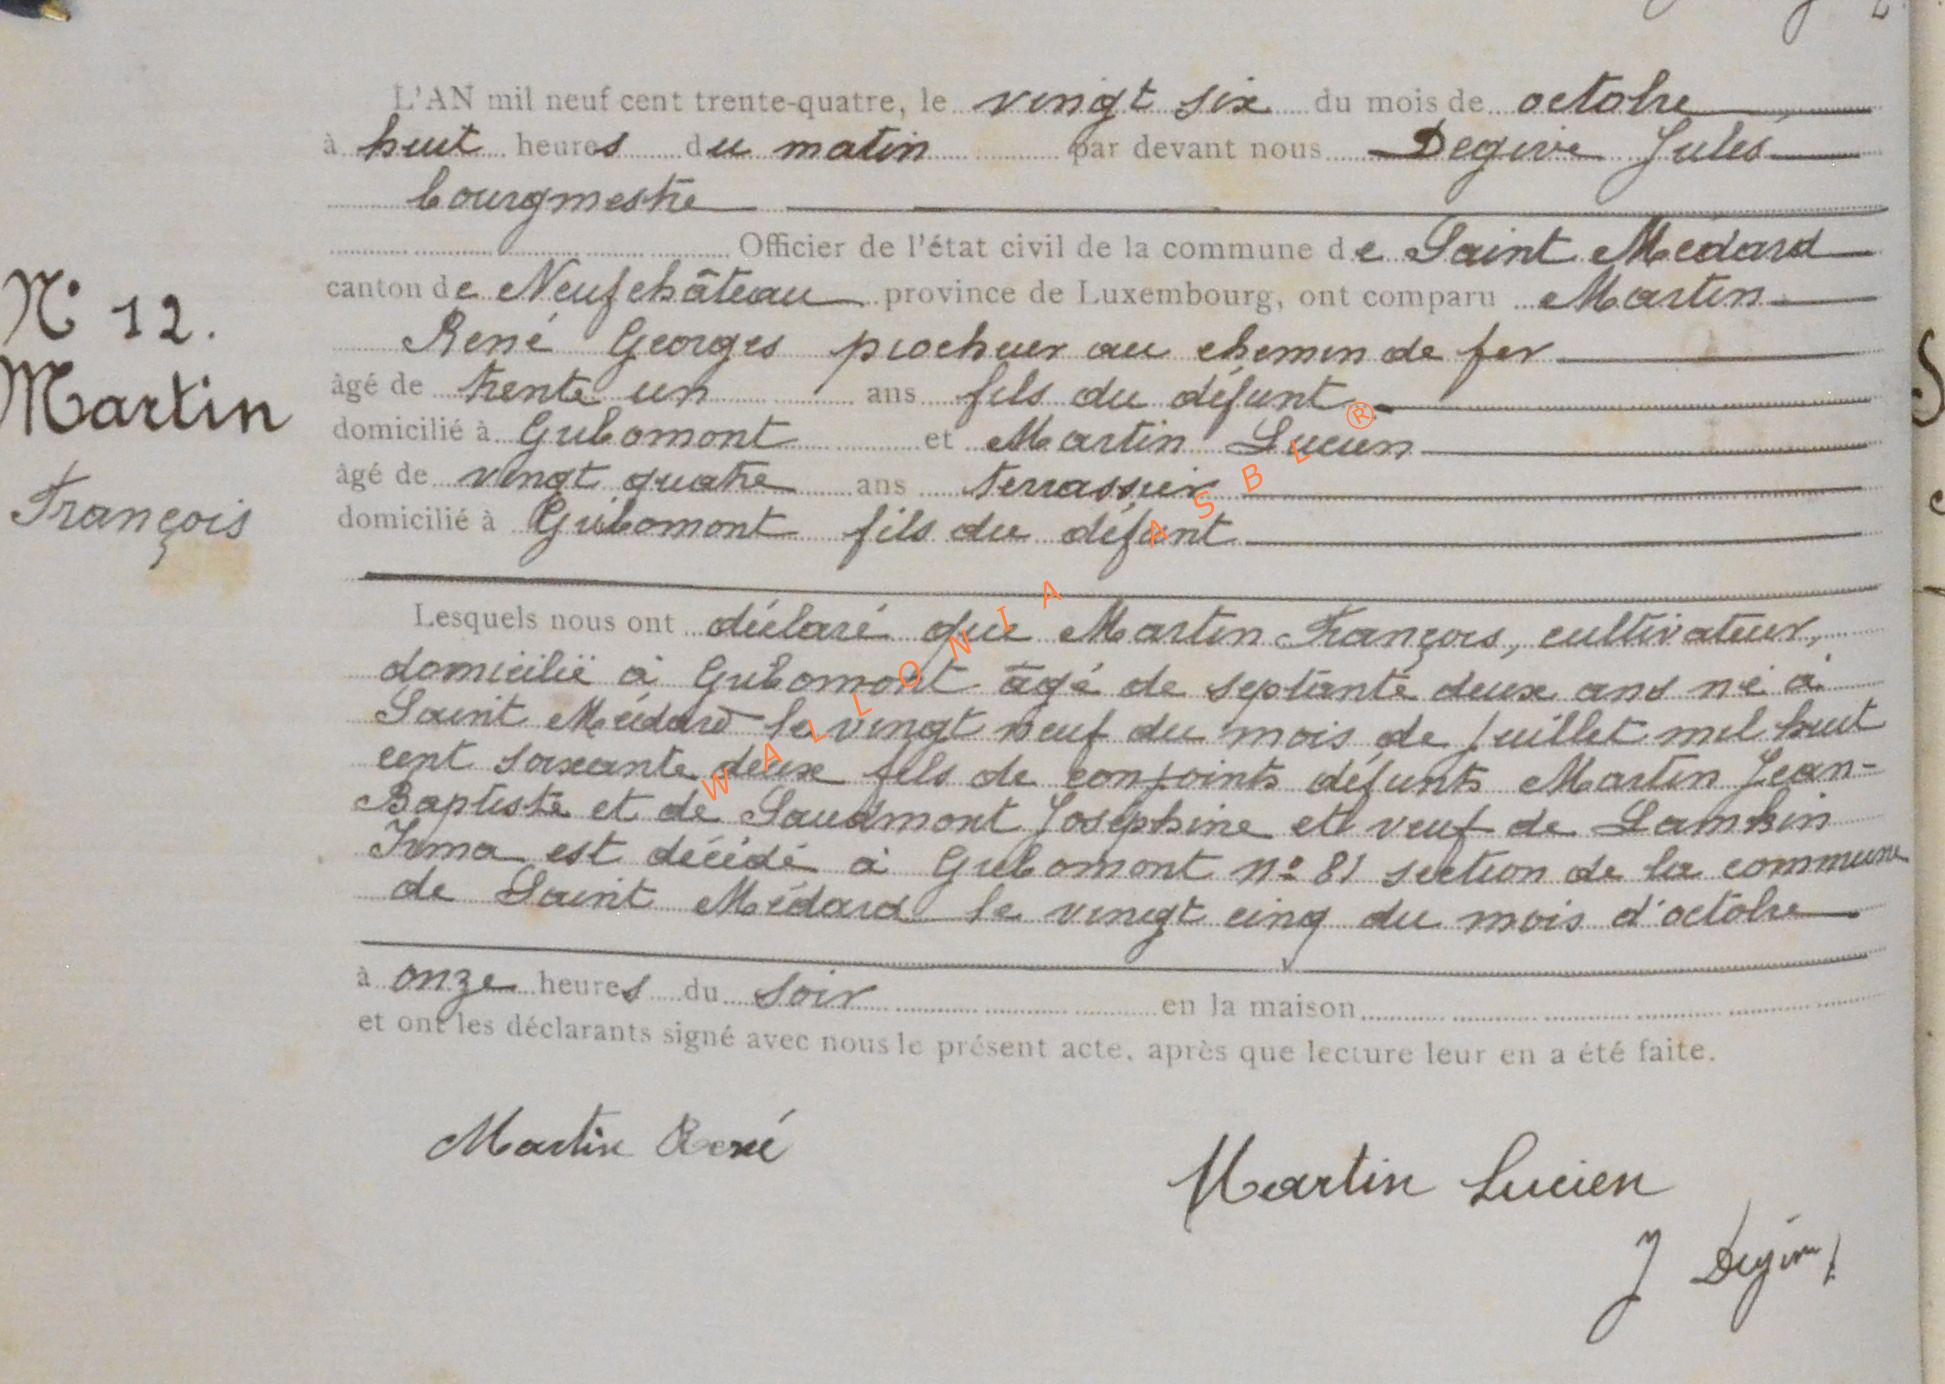 L'AN mil neuf cent trente-quatre, le vingt six du mois de octobre
à huit heures du matin par devant nous Degive Jules
bourgmestre
Officier de l'état civil de la commune de Saint Médard
canton de Neufchâteau province de Luxembourg, ont comparu Martin
René Georges piocheur au chemin de fer
âgé de trente un ans fils du défunt
domicilié à Gribomont et Martin Lucien
âgé de vingt quatre ans terrassier
domicilié à Gribomont fils du défunt
N° 12.
Martin
François
Lesquels nous ont déclaré que Martin François, cultivateur,
domicilié à Gribomont âgé de septante deux ans né à
Saint Médard le vingt neuf du mois de juillet mil huit
cent soixante deux fils de conjoints défunts Martin Jean-
Baptiste et de Saudmont Joséphine et veuf de Lambin
Irma est décédé à Gribomont n° 81 section de la commune
de Saint Médard le vingt cinq du mois d'octobre
à onze heures du soir en la maison
et ont les déclarants signé avec nous le présent acte, après que lecture leur en a été faite.
Martin René
Martin Lucien
J Degive
WALLONIA ASBL ®